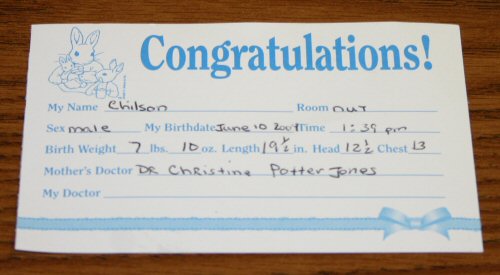 Congratulations!
My Name Chilson Room nut
Sex male My Birthdate June 10 2007 Time 1:39 pm
Birth Weight 7 lbs. 10 oz. Length 19 1/2 in. Head 12 1/2 Chest 13
Mother's Doctor DR Christine Potter Jones
My Doctor